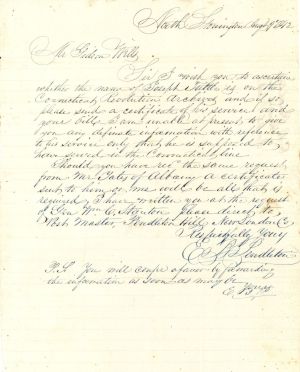 North Stonington Augt 9th 1842
Mr Gideon Wells,
Sir I wish you to ascertain
whether the name of Joseph Tuttle is on the
Connecticut Revolution Archives and if so,
please send a certificate of his service and
your bill. I am unable at present, to give
you any definite information with reference
to his service only that he is supposed to,
have served in the Connecticut line
Should you have rec'd the same request
from Mr Yates of Albany a certificate
sent to him or me will be all that is
required, I have written you at the request
of Gen Wm C. please direct to,
Post Master, Pendleton Hill, New London Co,
Respectfully Yours
Pendleton
P.S. You will confer a favor by forwarding
the information as soon as may be